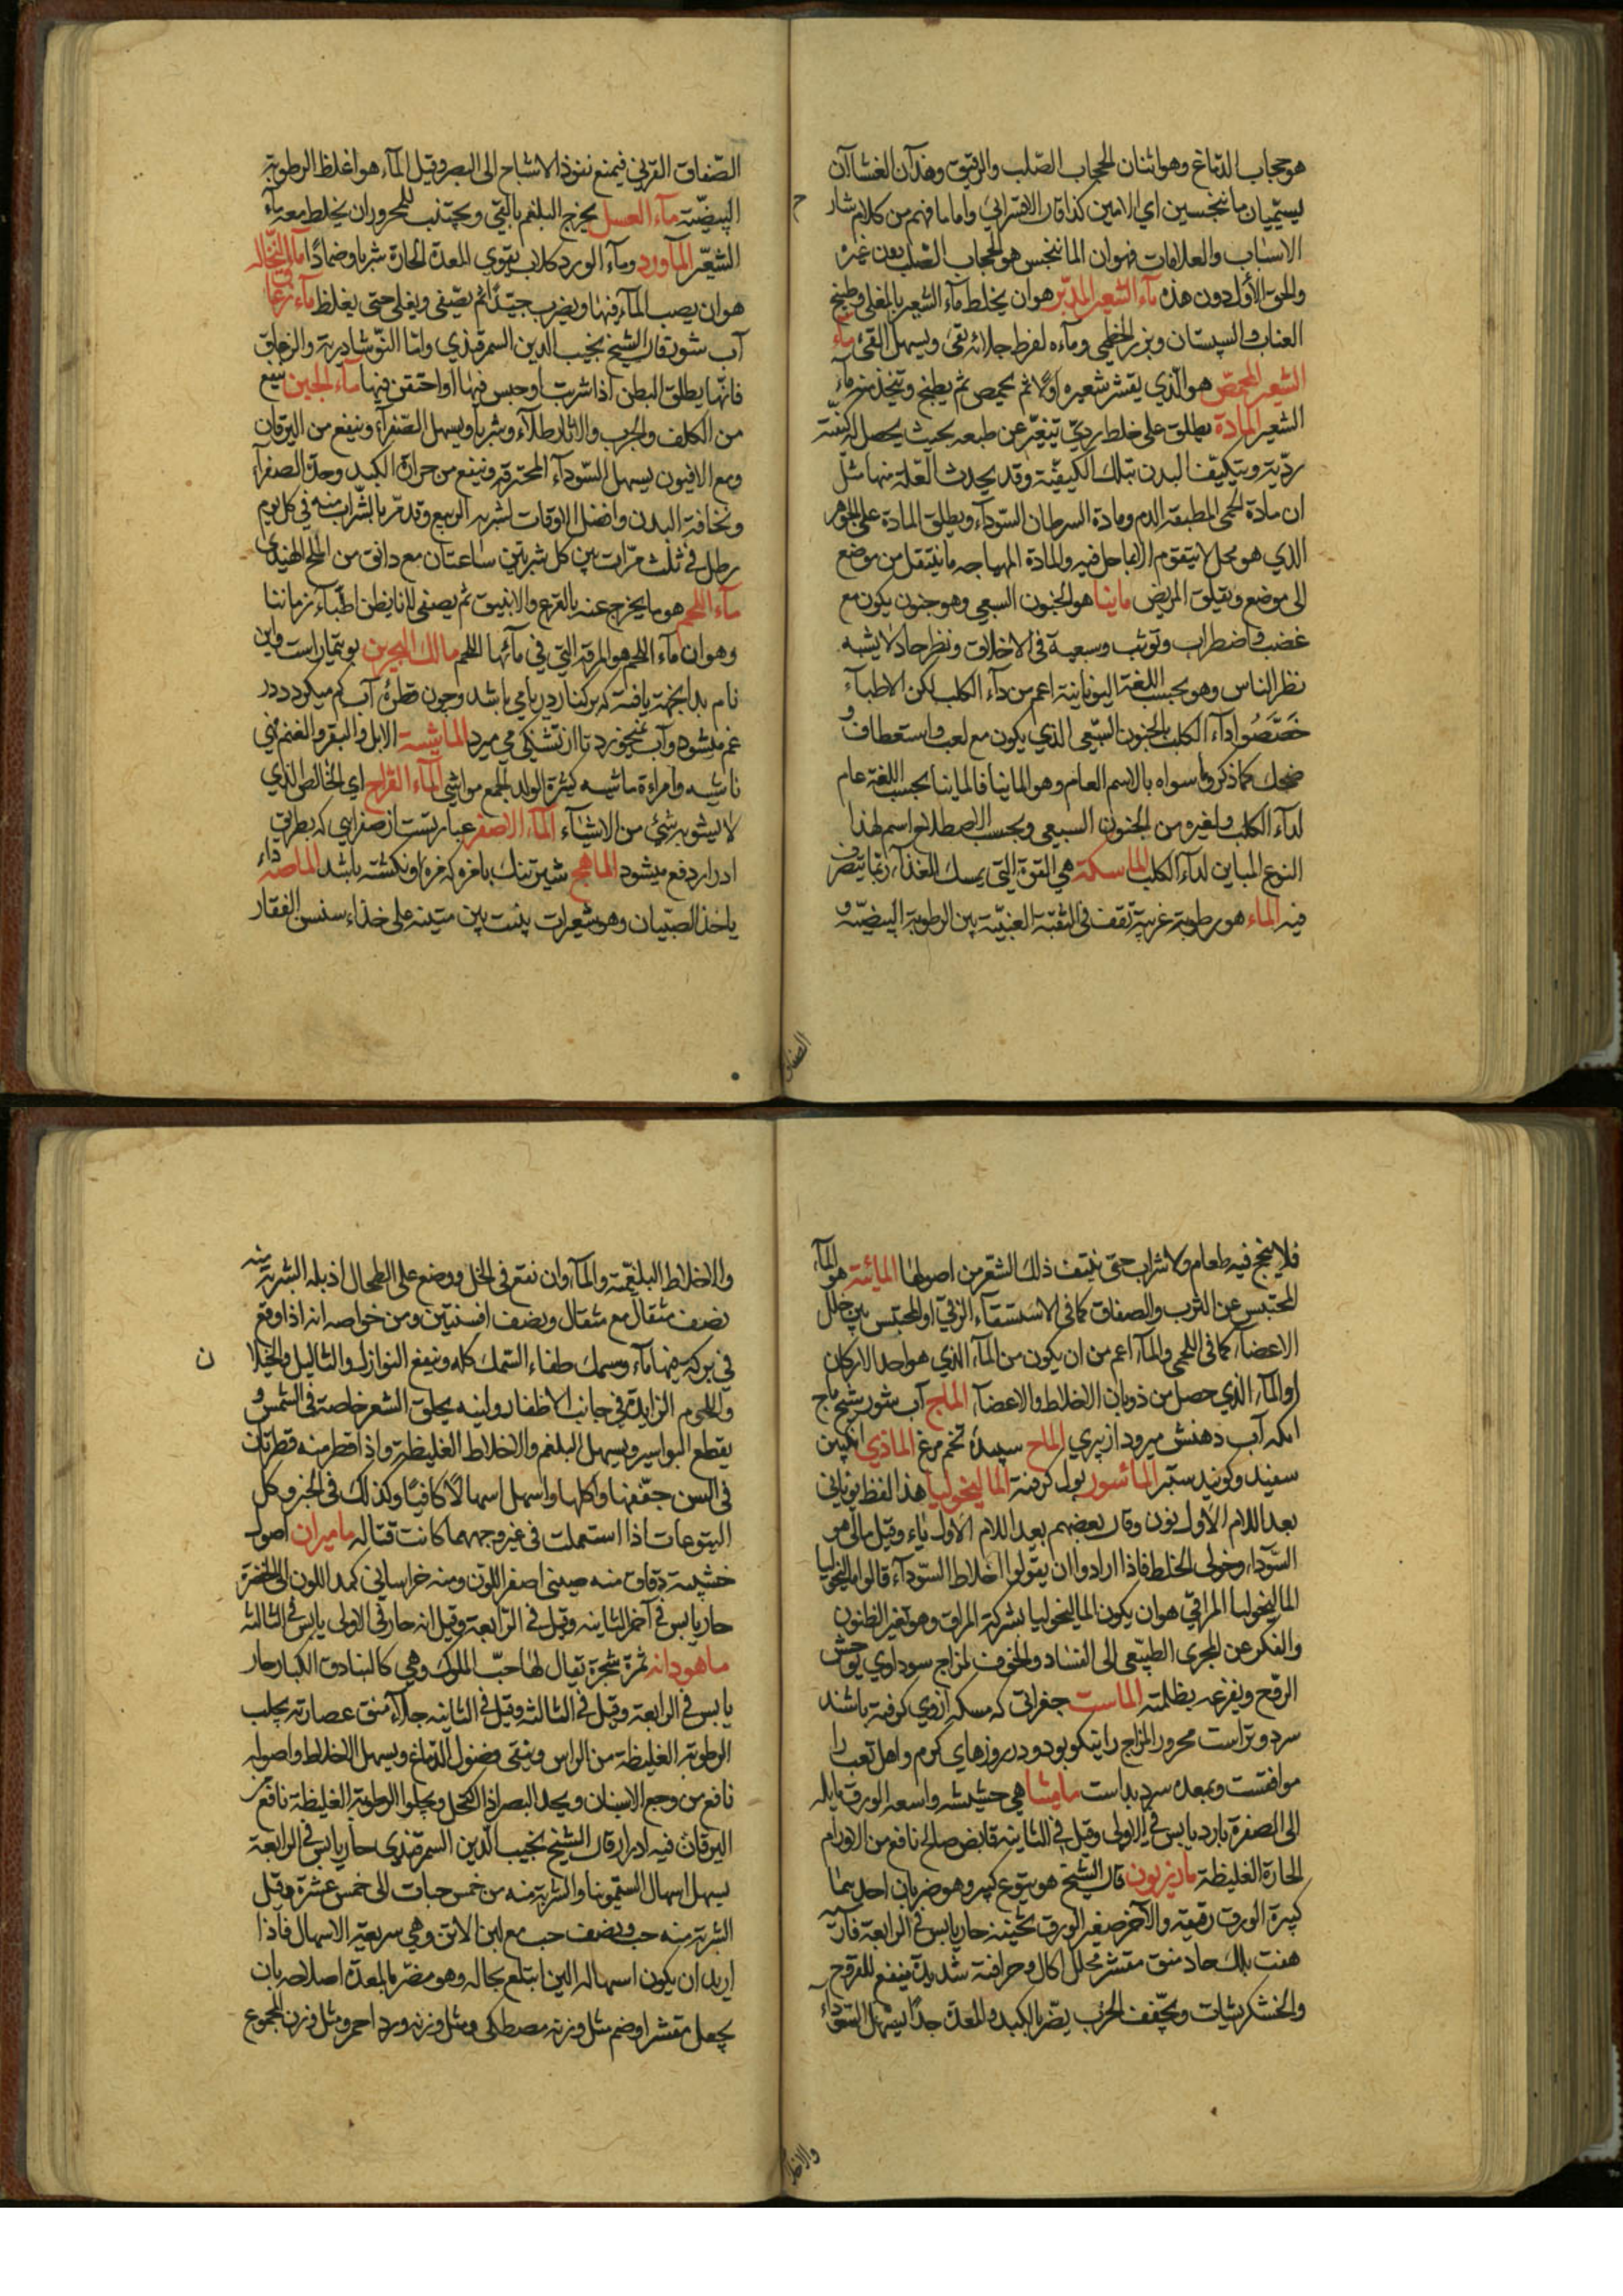 هو حجاب الدماغ وهو اثنان الحجاب الصلب والرقيق وهذان الغشاآن
يسميان مانخسين اي الامين كذا قال الاقسرائي واما ما فهم من كلام شار
الاسباب والعلامات فهو ان المانخس هو الحجاب الصلب دون غيره
والحق الاول دون هذه مآء الشعير المدبر هو ان يخلط مآء الشعير بالمغلي وطبيخ
العناب والسپستان وبزر الخطمي ومآءه لفرط جلائه نقي ويسهل القئ مآء
الشعير المحمص هو الذي يقشر شعيره اولا ثم يحمص ثم يطبخ ويتخذ منه مآء
الشعير المادة يطلق على خلط ردي تتغير عن طبعه بحيث يحصل له كيفية
ردية ويتكيف البدن بتلك الكيفية وقد يحدث العلة منها مثل
ان مادة الحمى المطبقة الدم ومادة السرطان السودآء ويطلق المادة على الجوهر
الذي هو محل لا يتقوم الا بما حل فيه والمادة المهياجه ما ينتقل من موضع
الى موضع ويقلق المريض مانيا هو الجنون السبعي وهو جنون يكون مع
غضب واضطراب وتوثب وسبعية في الاخلاق ونظر حاد لا يشبه
نظر الناس وهو بحسب اللغة اليونانية اعم من دآء الكلب لكن الاطبآء
خصصوا دآء الكلب بالجنون السبعي الذي يكون مع لعب واستعطاف و
ضحك كما ذكر وما سواه بالاسم العام وهو المانيا فالمانيا بحسب اللغة عام
لدآء الكلب ولغيره من الجنون السبعي وبحسب الاصطلاح اسم لهذا
النوع المباين لدآء الكلب الماسكة هي القوة التي يمسك الغذآء ريثما يتصرف
فيه المآء هو رطوبة غريبة تقف في الثقبة العنبية بين الرطوبة البيضية و
الصفاق
الصفاق القرني فيمنع نفوذ الاشباح الى البصر وقيل المآء هو اغلظ الرطوبة
البيضية مآء العسل يخرج البلغم بالقئ ويجتنب للمحرور ان يخلط معه مآء
الشعير المآورد ومآء الورد كلاب يقوي المعدة الحارة شربا وضمادا مآء النخالة
هو ان يصب المآء فيها ويضرب جيدا ثم يصفى ويغلى حتى يغلظ مآء زعاق
آب شور قال الشيخ نجيب الدين السمرقندي واما النوشادرية والزعاق
فانها يطلق البطن اذا شربت او جبس فيها او احتقن فيها مآء الجبن ينفع
من الكلف والجرب والاثار طلآء وشربا ويسهل الصفرآء وينفع من اليرقان
ومع الافيون يسهل السودآء المحترقة وينفع من حرارة الكبد وحدة الصفرآء
ونحافة البدن وافضل الاوقات لشربه الربيع وقدر بالشراب منه في كل يوم
رطل في ثلث مرات بين كل شربتين ساعتان مع دانق من الملح الهندي
مآء اللحم هو ما يخرج عنه بالقرع والانبيق ثم يصفى لا ما يظن اطبآء زماننا
وهو ان مآء اللحم هو المرقة التي في مآئها اللحم مالك الحزين بوتيمار است واين
نام بدانجهت يافته كه بر كنار دريا مي باشد وچون قطرۀ آب كم ميكردد در
غم ميشود وآب نميخورد تا از تشنكي مي ميرد الماشية الابل والبقر والغنم هي
ناشيه وامراءة ماشيه كثرة الولد الجمع مواشي المآء القراح اي الخالص الذي
لا يشوبه شئ من الاشيآء المآء الاصفر عبارتست از صفرايي كه بطريق
ادرار دفع ميشود الماهج شير تنك بامزه كه مزه او نكشته باشد الماصه دآء
ياخذ الصبيان وهو شعيرات ينبت بين متينه على حذاء سنسن الفقار
فلا ينجع فيه طعام ولا شراب حتى ينتف ذلك الشعر من اصولها المائية هو المآء
المحتبس عن الثرب والصفاق كما في الاستسقآء الزقي او المحتبس بين خلل
الاعضآء كما في اللحمي والمآء اعم من ان يكون من المآء الذي هو احد الاركان
او المآء الذي حصل من ذوبان الاخلاط والاعضآء الماج آب شور شيخ ماج
انكه آب دهنش ميرود از پيري الماح سپيدۀ تخم مرغ الماذي انكبين
سفيد وكويند ستبر المآسور بول كرفته الماليخوليا هذا لفظ يوناني
بعد اللام الاول نون وقال بعضهم بعد اللام الاول ياء وقيل مالي هو
السودآء وخولي الخلط فاذا ارادوا ان يقولوا اخلاط السودآء قالوا ماليخوليا
الماليخوليا المراقي هو ان يكون الماليخوليا بشركة المراق وهو تغير الظنون
والفكر عن المجرى الطبيعي الى الفساد والخوف لمزاج سوداوي يوحش
الروح ويفزعه بظلمته الماست جغراتي كه مسكه ازوي كرفته باشند
سرد وتر است محرور المزاج را نيكو بود ودر روزهاي كرم واهل تعب را
موافقست وبمعده سرد بد است ماميثا هي حشيشة واسعة الورق مايلة
الى الصفرة بارد يابس في الاولى وقيل في الثانية قابض صالح نافع من الاورام
الحارة الغليظة مازريون قال الشيخ هو يتوع كبير وهو ضربان احدهما
كبيرة الورق رقيقة والآخر صغير الورق ثخينة حار يابس في الرابعة
حاد منق مقشر محلل اكال وحرافته شديدة ينفع للقروح
والخشكريشات ويجفف الجرب يضر بالكبد والمعدة جدا يسهل السودآء
والاخلاط
والاخلاط البلغمية والمآء وان نقع في الخل ووضع على الطحال اذبله الشربة منه
نصف مثقال مع مثقال ونصف افسنتين ومن خواصه انه اذا وقع
في بركة فيها مآء وسمك طفاء السمك كله وينفع النوازل والثاليل والخيلا ن
واللحوم الزايدة في جانب الاظفار ولبنه يحلق الشعر خاصة في الشمس و
يقطع البواسير ويسهل البلغم والاخلاط الغليظة واذا قطر منه قطرتان
في التين جففها واكلها واسهل اسهالا كافيا وكذلك في الخبز وكل
اليتوعات اذا استعملت في غير وجهها كانت قتالة ماميران اصول
خشبية دقاق منه صيني اصفر اللون ومنه خراساني كمد اللون الى الخضرة
حار يابس في آخر الثانية وقيل في الرابعة وقيل انه حار في الاولى يابس في الثالثة
ماهودانه ثمرة شجرة يقال لها حب الملوك وهي كالبنادق الكبار حار
يابس في الرابعة وقيل في الثالثة وقيل في الثانية جلاء منق عصارته يجلب
الرطوبة الغليظة من الراس وينقي فضول الدماغ ويسهل الاخلاط واصوله
نافع من وجع الاسنان ويحد البصر اذا اكتحل ويجلوا الرطوبة الغليظة نافع من
اليرقان فيه ادرار قال الشيخ نجيب الدين السمرقندي حار يابس في الرابعة
يسهل اسهال السقمونيا والشربة منه من خمس حبات الى خمس عشرة وقيل
الشربة منه حب ونصف حب مع لبن الاتن وهي سريعة الاسهال فاذا
اريد ان يكون اسهاله الين ابتلع بحاله وهو مضر بالمعدة اصلاحه بان
يجعل مقشرا وضم مثل وزنه مصطكي ومثل وزنه ورد احمر ومثل وزن المجموع